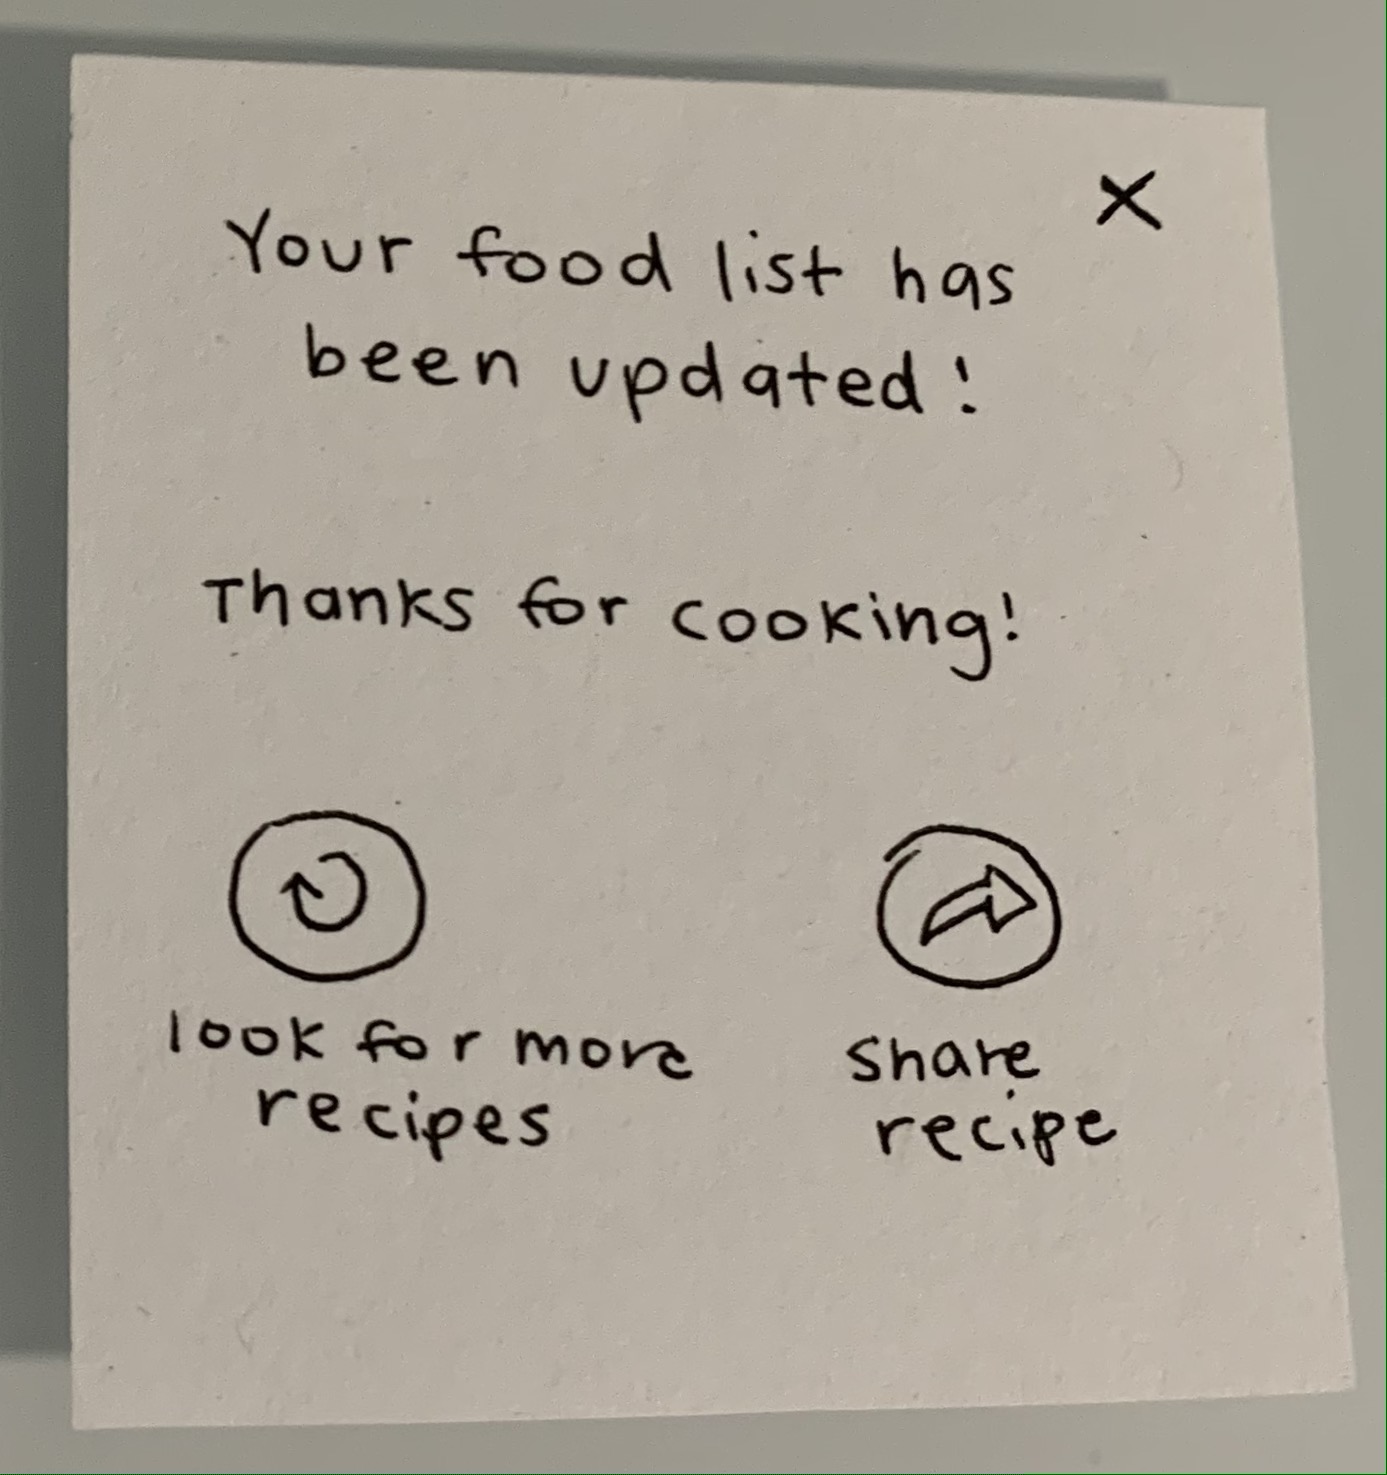 X
Your food list has
been updated!
Thanks for cooking!
look for more
recipes
share
recipe